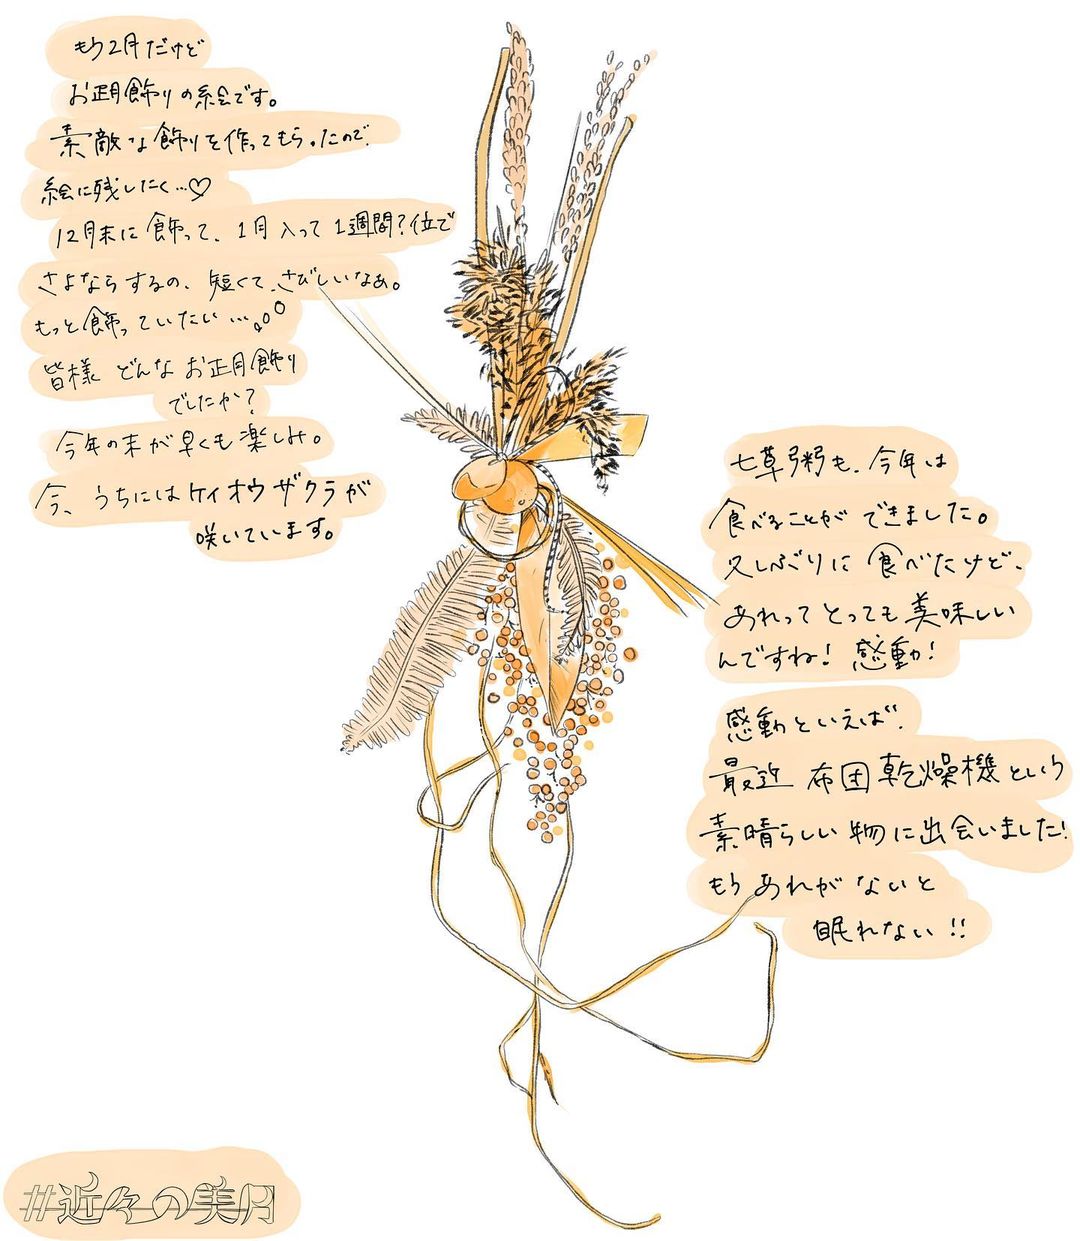 もう2月だけど
お正月飾りの絵です。
素敵な飾りを作ってもらったので、
絵に残したく…♡
12月末に飾って、1月入って1週間?位で
さよならするの、短くて、さびしいなぁ。
もっと飾っていたい…。
皆様 どんなお正月飾り
でしたか?
今年の末が早くも楽しみ。
今、うちにはケイオウザクラが
咲いています。
七草粥も、今年は
食べることができました。
久しぶりに食べたけど、
あれってとっても美味しい
んですね!感動!
感動といえば、
最近 布団乾燥機という
素晴らしい物に出会いました!
もうあれがないと
眠れない!!
#近々の美月